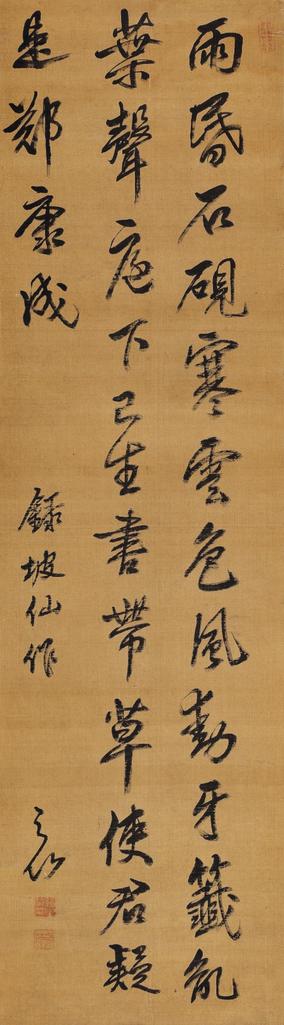 雨昏石硯寒雲色風動牙籤亂
葉聲庭下已生書帶草使君疑
是鄭康成
錄坡仙作